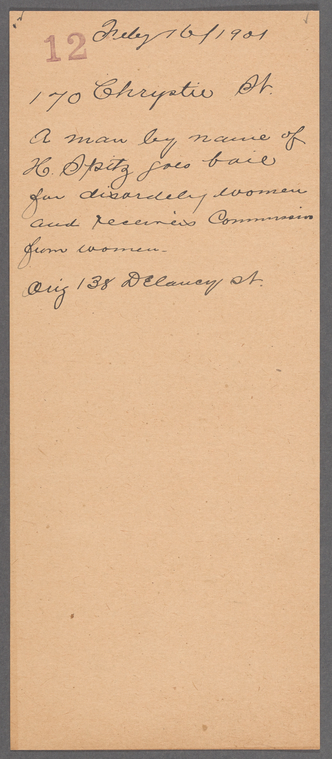 12
July 16/1901
170 Chrystie St.
A man by name of
H. Spitz goes bail
for disordely women
and receives Commission
from women.
Orig 138 Delancy st.